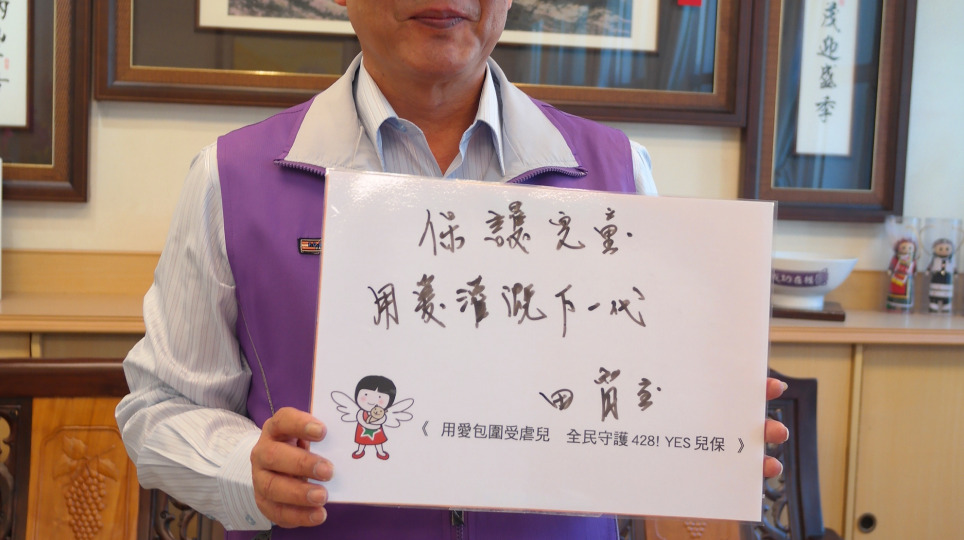 茂迎盛季
保護兒童
用愛灌溉下一代
《 用愛包圍受虐兒 全民守護428! YES兒保 》